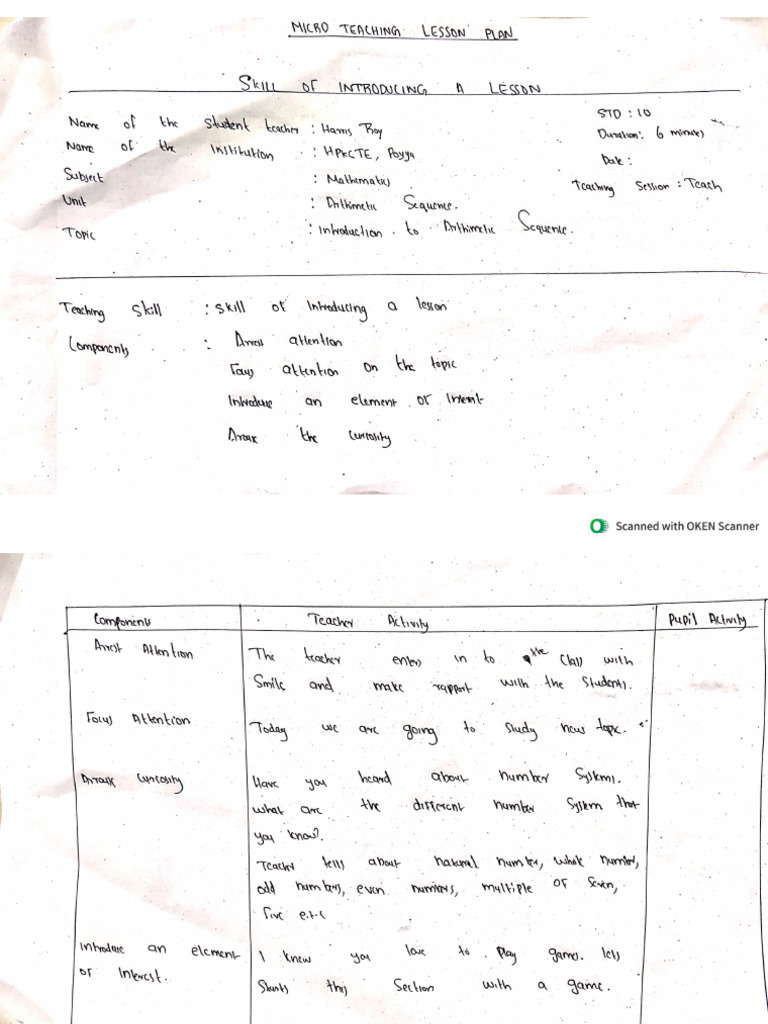 MICRO TEACHING LESSON PLAN
SKILL OF INTRODUCING A LESSON
Name of the Student teacher : Harris Roy
STD : 10
Name of the Institution : HPKCTE, Poyya
Duration: 6 minutes
Subject : Mathematics
Date :
Unit : Arithmetic Sequence.
Teaching Session : Teach
Topic : Introduction to Arithmetic Sequence.
Teaching Skill : Skill of Introducing a lesson
Components : Arrest attention
Focus attention on the topic
Introduce an element of Interest
Arouse the Curiosity
Scanned with OKEN Scanner
Components Teacher Activity Pupil Activity
Arrest Attention The teacher enters in to the Class with
Smile and make rapport with the Students.
Focus Attention Today we are going to study new topic.
Arouse Curiosity Have you heard about number Systems.
what are the different number System that
you know?
Teacher tells about natural number, whole number,
odd numbers, even numbers, multiple of Seven,
five e.t.c
Introduce an element I know you love to Play games. lets
of Interest. this Section with a game.